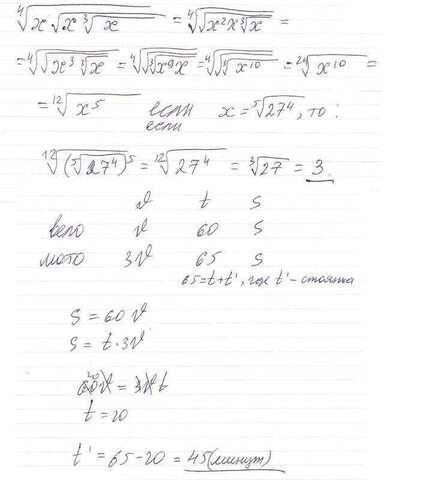 ⁴√(x√(x ³√x)) = ⁴√√(x²x ³√x) =
= ⁴√√(x³ ³√x) = ⁴√√(³√(x⁹x)) = ⁴√√(³√(x¹⁰)) = ²⁴√(x¹⁰) =
= ¹²√(x⁵) если x = ⁵√(27⁴), то :
если
¹²√((⁵√(27⁴))⁵) = ¹²√(27⁴) = ³√27 = 3.
v t S
вело v 60 S
мото 3v 65 S
65=t+t', где t' - стоянка
S = 60v
S = t·3v
20
60v = 3v t
t = 20
t' = 65-20 = 45(минут)